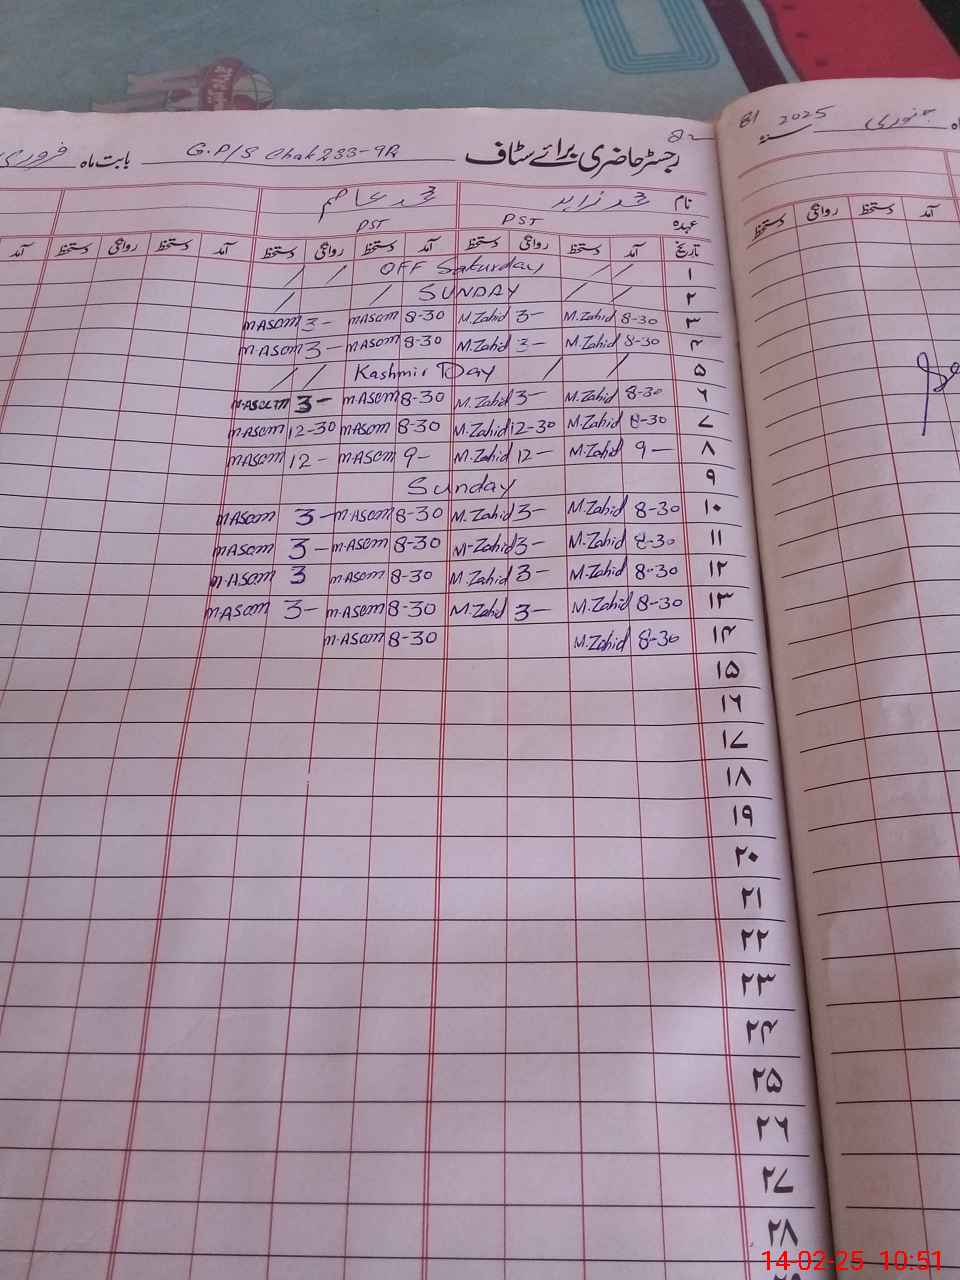 82
رجسٹر حاضری برائے سٹاف G.P/S Chak 233-9R بابت ماہ فروری
نام محمد زاہد محمد عاصم
عہدہ PST PST
تاریخ آمد دستخط روانگی دستخط آمد دستخط روانگی دستخط آمد دستخط روانگی دستخط آمد
۱ / / OFF Saturday / /
۲ / / SUNDAY / /
۳ 8-30 M.Zahid 3- M.Zahid 8-30 M.ASOM 3- M.ASOM
۴ 8-30 M.Zahid 3- M.Zahid 8-30 M.ASOM 3- M.ASOM
۵ / / Kashmir Day / /
۶ 8-30 M.Zahid 3- M.Zahid 8-30 M.ASOM 3-
۷ 8-30 M.Zahid 12-30 M.Zahid 8-30 M.ASOM 12-30 M.ASOM
۸ 9- M.Zahid 12- M.Zahid 9- M.ASOM 12- M.ASOM
۹ Sunday
۱۰ 8-30 M.Zahid 3- M.Zahid 8-30 M.ASOM 3- M.ASOM
۱۱ 8-30 M.Zahid 3- M-Zahid 8-30 M.ASOM 3- M.ASOM
۱۲ 8-30 M.Zahid 3- M.Zahid 8-30 M.ASOM 3 M.ASOM
۱۳ 8-30 M.Zahid 3- M.Zahid 8-30 M.ASOM 3- M.ASOM
۱۴ 8-30 M.Zahid 8-30 M.ASOM
۱۵
۱۶
۱۷
۱۸
۱۹
۲۰
۲۱
۲۲
۲۳
۲۴
۲۵
۲۶
۲۷
۲۸
81 2025 جنوری
آمد دستخط روانگی دستخط
14-02-25 10:51